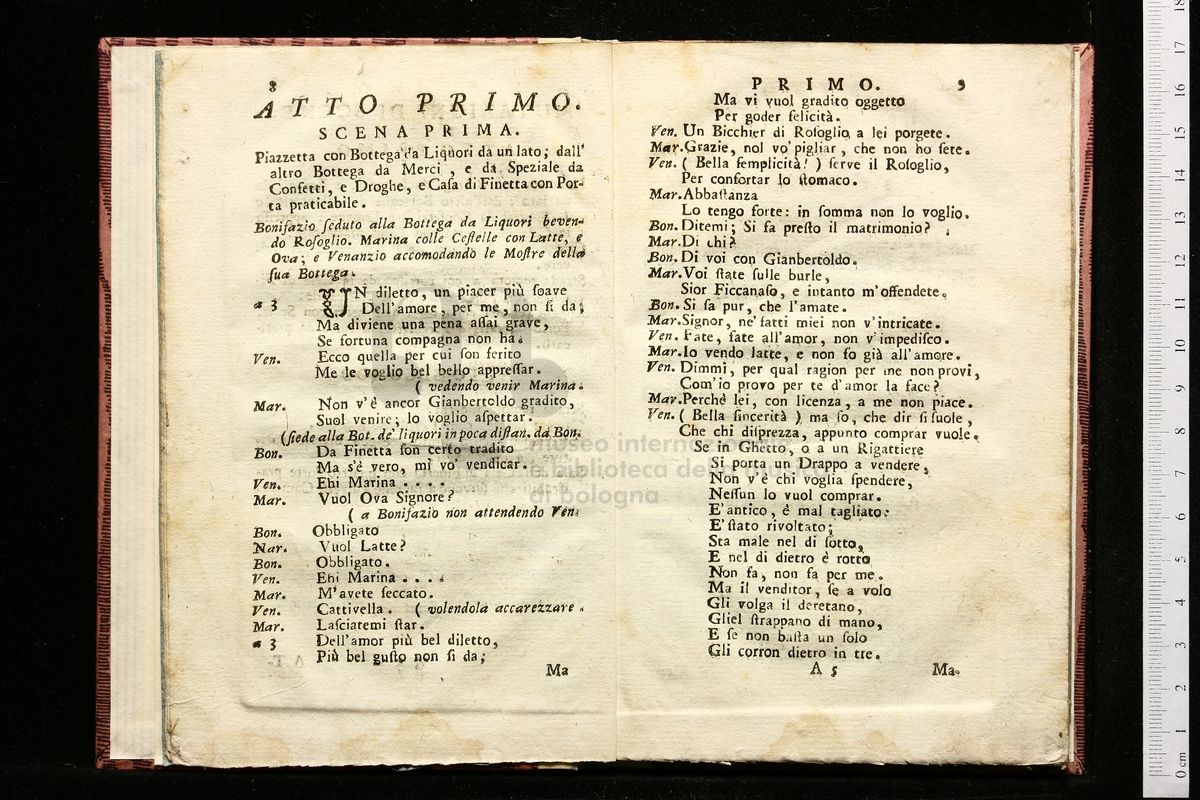 8
ATTO PRIMO.
SCENA PRIMA.
Piazzetta con Bottega da Liquori da un lato; dall'
altro Bottega da Merci, e da Speziale da
Confetti, e Droghe, e Caſa di Finetta con Por-
ta praticabile.
Bonifazio ſeduto alla Bottega da Liquori beven-
do Roſoglio. Marina colle Ceſtelle con Latte, e
Ova; e Venanzio accomodando le Moſtre della
ſua Bottega.
a 3 UN diletto, un piacer più ſoave
Dell'amore, per me, non ſi da;
Ma diviene una pena aſſai grave,
Se fortuna compagna non ha.
Ven. Ecco quella per cui ſon ferito
Me le voglio bel bello appreſſar.
( vedendo venir Marina.
Mar. Non v'è ancor Gianbertoldo gradito,
Suol venire; lo voglio aſpettar.
(ſiede alla Bot. de' liquori in poca diſtan. da Bon.
Bon. Da Finetta ſon certo tradito
Ma s'è vero, mì vo' vendicar.
Ven. Ehi Marina . . . .
Mar. Vuol Ova Signore?
( a Bonifazio non attendendo Ven.
Bon. Obbligato
Nar. Vuol Latte?
Bon. Obbligato.
Ven. Ehi Marina . . . .
Mar. M'avete ſeccato.
Ven. Cattivella. ( volendola accarezzare.
Mar. Laſciatemi ſtar.
a 3 Dell'amor più bel diletto,
Più bel guſto non ſi da;
Ma
PRIMO. 9
Ma vi vuol gradito oggetto
Per goder felicità.
Ven. Un Bicchier di Roſoglio a lei porgete.
Mar. Grazie, nol vo' pigliar, che non ho ſete.
Ven. ( Bella ſemplicità! ) ſerve il Roſoglio,
Per confortar lo ſtomaco.
Mar. Abbaſtanza
Lo tengo forte: in ſomma non lo voglio.
Bon. Ditemi; Si fa preſto il matrimonio?
Mar. Di chi?
Bon. Di voi con Gianbertoldo.
Mar. Voi ſtate ſulle burle,
Sior Ficcanaſo, e intanto m'offendete.
Bon. Si ſa pur, che l'amate.
Mar. Signor, ne' fatti miei non v'intricate.
Ven. Fate, fate all'amor, non v'impediſco.
Mar. Io vendo latte, e non fo già all'amore.
Ven. Dimmi, per qual ragion per me non provi,
Com'io provo per te d'amor la face?
Mar. Perchè lei, con licenza, a me non piace.
Ven. ( Bella ſincerità ) ma ſo, che dir ſi ſuole,
Che chi diſprezza, appunto comprar vuole.
Se in Ghetto, o a un Rigattiere
Si porta un Drappo a vendere,
Non v'è chi voglia ſpendere,
Neſſun lo vuol comprar.
E' antico, è mal tagliato:
E' ſtato rivoltato;
Sta male nel di ſotto,
E nel di dietro è rotto
Non fa, non fa per me.
Ma il venditor, ſe a volo
Gli volga il deretano,
Gliel ſtrappano di mano,
E ſe non baſta un ſolo
Gli corron dietro in tre.
A 5 Ma
museo internazionale
e biblioteca della musica
di bologna
0 cm 1 2 3 4 5 6 7 8 9 10 11 12 13 14 15 16 17 18